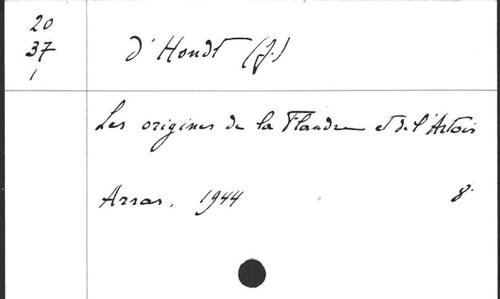 20
37
1
d'Hondt (J.)
Les origines de la Flandre et de l'Artois
Arras. 1944 8°